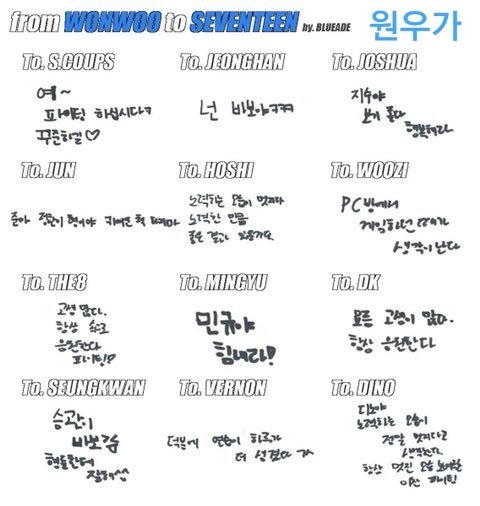 from WONWOO to SEVENTEEN by. BLUEADE 원우가
To. S.COUPS
예~
파이팅 하십시다ㅋ
꾸준하길♡
To. JEONGHAN
넌 바보야ㅋㅋ
To. JOSHUA
지수야
보기 좋다
행복해라
To. JUN
준아
To. HOSHI
노력하는 모습이 멋지다
노력한 만큼
좋은 결과 있을거야.
To. WOOZI
PC방에서
게임하던 때가
생각이 난다
To. THE8
고생 많다.
항상 속으로
응원한다
파이팅♡
To. MINGYU
민규야
힘내라!
To. DK
요즘 고생이 많다.
항상 응원한다
To. SEUNGKWAN
승관이
바보감
형들한테
잘해^^
To. VERNON
덕분에 연습이 하루가
더 신났다 가
To. DINO
디노야
노력하는 모습이
정말 멋지다고
생각한다.
항상 멋진 모습 보여줄
이찬 파이팅